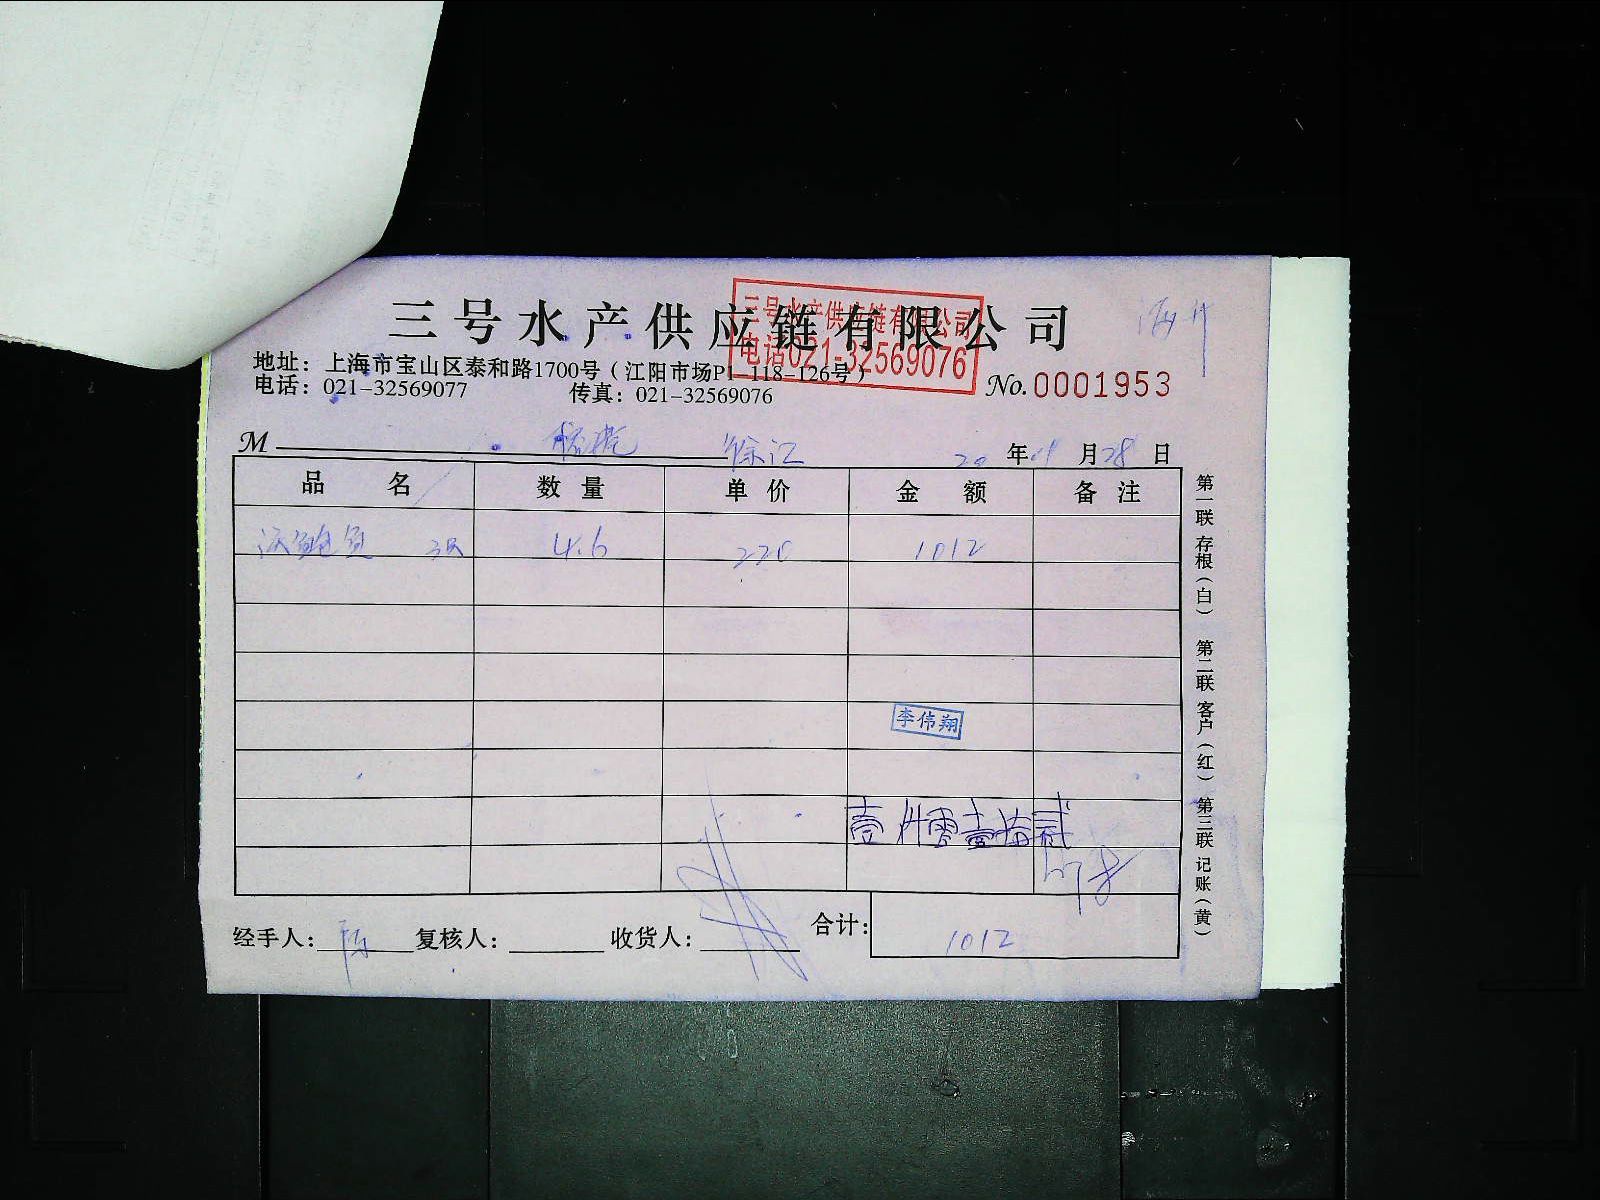 三号水产供应链有限公司
三号水产供应链有限公司
电话021-32569076
地址：上海市宝山区泰和路1700号（江阳市场P1-118-126号）
电话：021-32569077 传真：021-32569076
No. 0001953
M 徐汇 20 年 月 28 日
品名 数量 单价 金额 备注
鲍鱼 4.6 220 1012
李伟翔
壹仟零壹拾贰
经手人： 陈 复核人： 收货人： 合计： 1012
第一联 存根（白） 第二联 客户（红） 第三联 记账（黄）